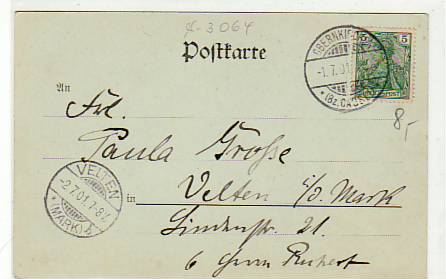 x-3064
Postkarte
5
-1.7.01
*(Bz. CASSEL)
An
Frl.
8,-
Paula Große
VELTEN
-2.7.01.7-8V.
*(MARK)*
in Velten i/d. Mark
Lindenstr. 21.